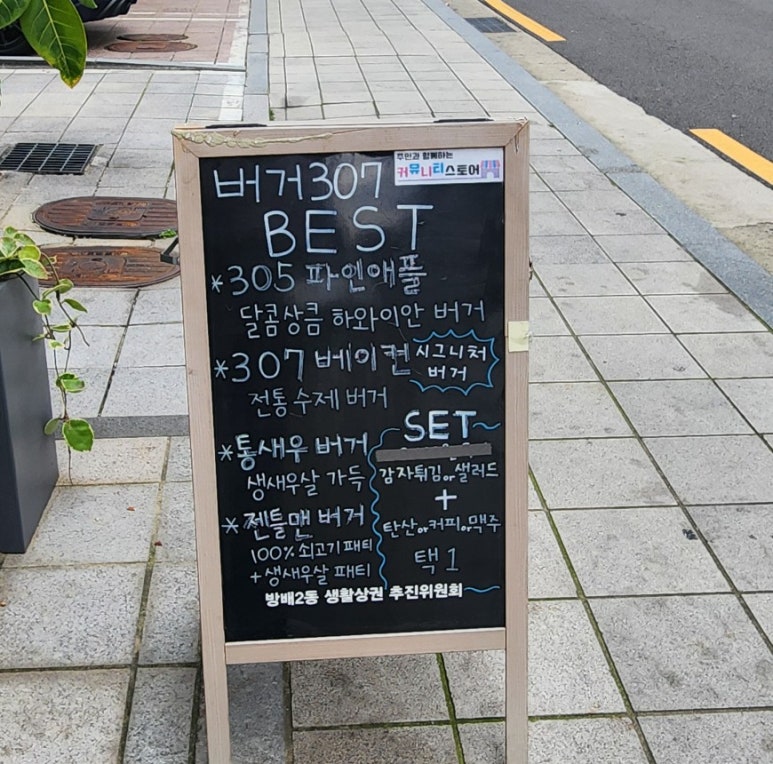 주민과 함께하는
커뮤니티스토어
버거307
BEST
*305 파인애플
달콤상큼 하와이안 버거
*307 베이컨
시그니처
버거
전통 수제 버거
*통새우 버거
생새우살 가득
*젠틀맨 버거
100% 쇠고기 패티
+생새우살 패티
SET
감자튀김or샐러드
+
탄산or커피or맥주
택1
방배2동 생활상권 추진위원회